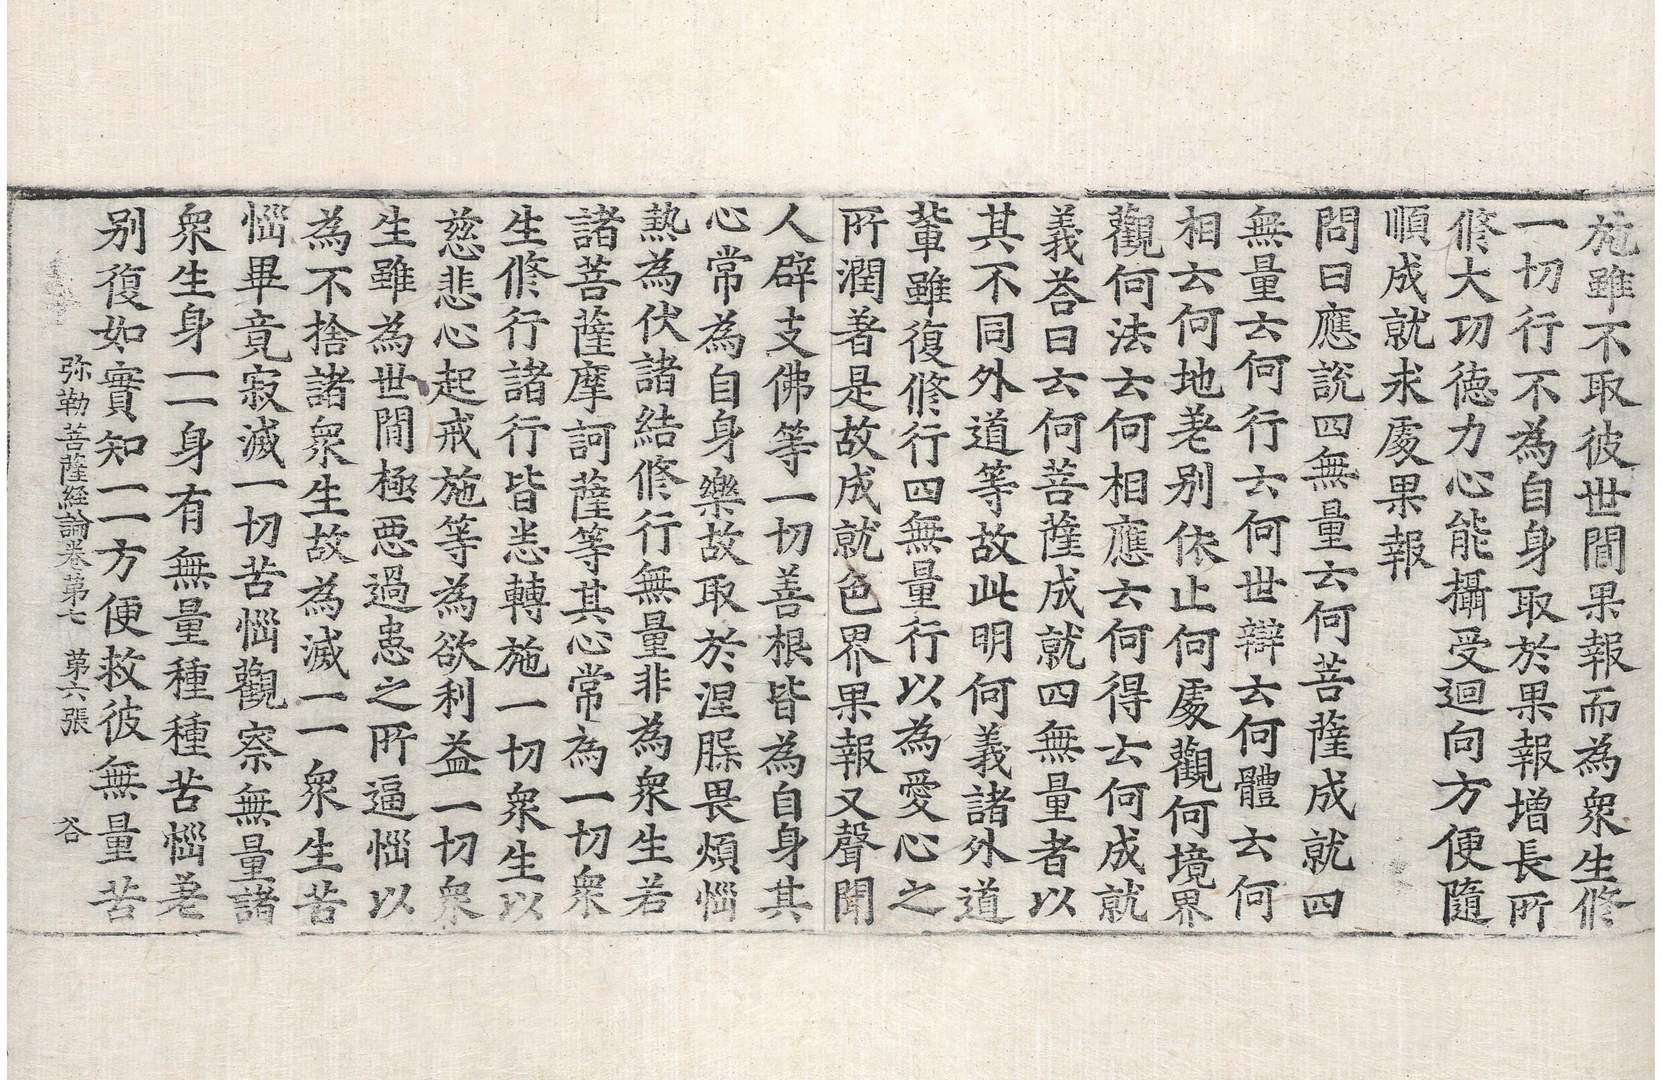 施雖不取彼世間果報而為衆生修
一切行不為自身取於果報增長所
修大功德力心能攝受迴向方便隨
順成就求處果報
問曰應說四無量云何菩薩成就四
無量云何行云何世辯云何體云何
相云何地差别依止何處觀何境界
觀何法云何相應云何得云何成就
義荅曰云何菩薩成就四無量者以
其不同外道等故此明何義諸外道
輩雖復修行四無量行以為愛心之
所潤著是故成就色界果報又聲聞
人辟支佛等一切善根皆為自身其
心常為自身樂故取於涅槃畏煩惱
熱為伏諸結修行無量非為衆生若
諸菩薩摩訶薩等其心常為一切衆
生修行諸行皆悉轉施一切衆生以
慈悲心起戒施等為欲利益一切衆
生雖為世間極惡過患之所逼惱以
為不捨諸衆生故為滅一一衆生苦
惱畢竟寂滅一切苦惱觀察無量諸
衆生身一一身有無量種種苦惱差
别復如實知一一方便救彼無量苦
弥勒菩薩経論卷第七　第六張　谷